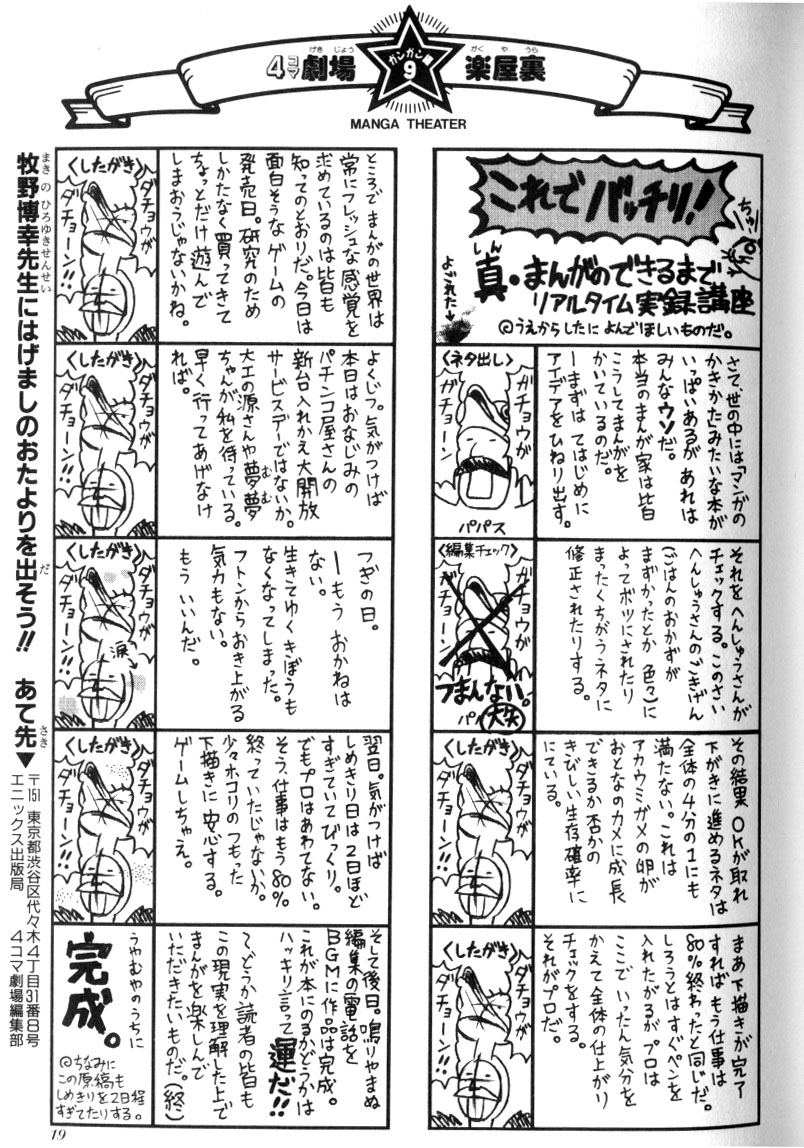 4コマ劇場
げきじょう
ガンガン編
9
楽屋裏
がくやうら
MANGA THEATER
これでバッチリ!
ちゅ
真・まんがのできるまで
しん
リアルタイム実録講座
よごれた→
@うえからしたによんでほしいものだ。
さて、世の中には「マンガの
かきかた」みたいな本が
いっぱいあるが あれは
みんなウソだ。
本当のまんが家は皆
こうしてまんがを
かいているのだ。
ーまずは てはじめに
アイデアをひねり出す。
〈ネタ出し〉
ガチョウが
ガチョーン
パパス
それを へんしゅうさんが
チェックする。このさい
へんしゅうさんのごきげん
ごはんのおかずが
まずかったとか 色々に
よってボツにされたり
まったくちがうネタに
修正されたりする。
〈編集チェック〉
ガチョウが
ガチョーン
つまんない。
パパ
大矢
その結果 OKが取れ
下がきに進めるネタは
全体の4分の1にも
満たない。これは
アカウミガメの卵が
おとなのカメに成長
できるか否かの
きびしい生存確率に
にている。
〈したがき〉
ダチョウが
ダチョーン!!
まあ下描きが完了
すれば もう仕事は
80%終わったと同じだ。
しろうとはすぐペンを
入れたがるが プロは
ここで いったん気分を
かえて全体の仕上がり
チェックをする。
それがプロだ。
〈したがき〉
ダチョウが
ダチョーン!!
ところで まんがの世界は
常にフレッシュな感覚を
求めているのは皆も
知ってのとおりだ。今日は
面白そうな ゲームの
発売日。研究のため
しかたなく買ってきて
ちょっとだけ遊んで
しまおうじゃないかね。
〈したがき〉
ダチョウが
ダチョーン!!
よくじつ。気がつけば
本日はおなじみの
パチンコ屋さんの
新台入れかえ大開放
サービスデーではないか。
大工の源さんや夢夢
むむ
ちゃんが私を待っている。
早く行ってあげなけ
れば。
〈したがき〉
ダチョウが
ダチョーン!!
つぎの日。
ーもう おかねは
ない。
生きてゆくきぼうも
なくなってしまった。
フトンからおき上がる
気力もない。
もう いいんだ。
〈したがき〉
ダチョウが
ダチョーン!!
涙→
翌日。気がつけば
しめきり日は2日ほど
すぎていてびっくり。
でもプロはあわてない。
そう、仕事はもう80%
終っていたじゃないか。
少々ホコリのつもった
下描きに安心する。
ゲームしちゃえ。
〈したがき〉
ダチョウが
ダチョーン!!
そして後日。鳴りやまぬ
編集の電話を
BGMに作品は完成。
これが本にのるかどうかは
ハッキリ言って運だ!!
~どうか読者の皆も
この現実を理解した上で
まんがを楽しんで
いただきたいものだ。(終)
うやむやのうちに
完成。
@ちなみに
この原稿も
しめきりを2日程
すぎてたりする。
牧野博幸先生にはげましのおたよりを出そう!! あて先▼
まきのひろゆきせんせい
だ
さき
〒151 東京都渋谷区代々木4丁目31番8号
エニックス出版局 4コマ劇場編集部
19